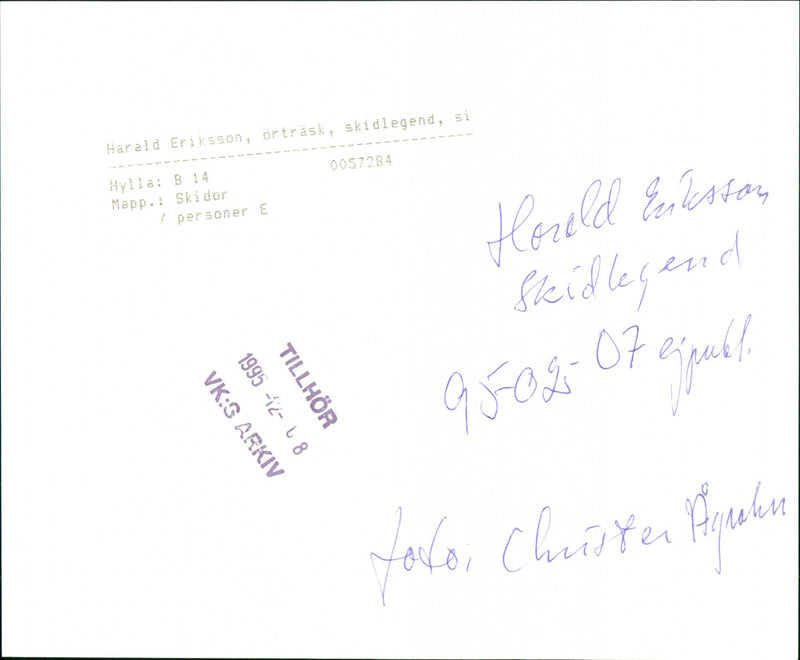 Harald Eriksson, örträsk, skidlegend, si
Hylla: B 14 0057284
Mapp.: Skidor
/ personer E
Harald Eriksson
Skidlegend
95-02-07 ej publ.
TILLHÖR
1995 -12- 08
VK:S ARKIV
foto: Christer Ågrahn